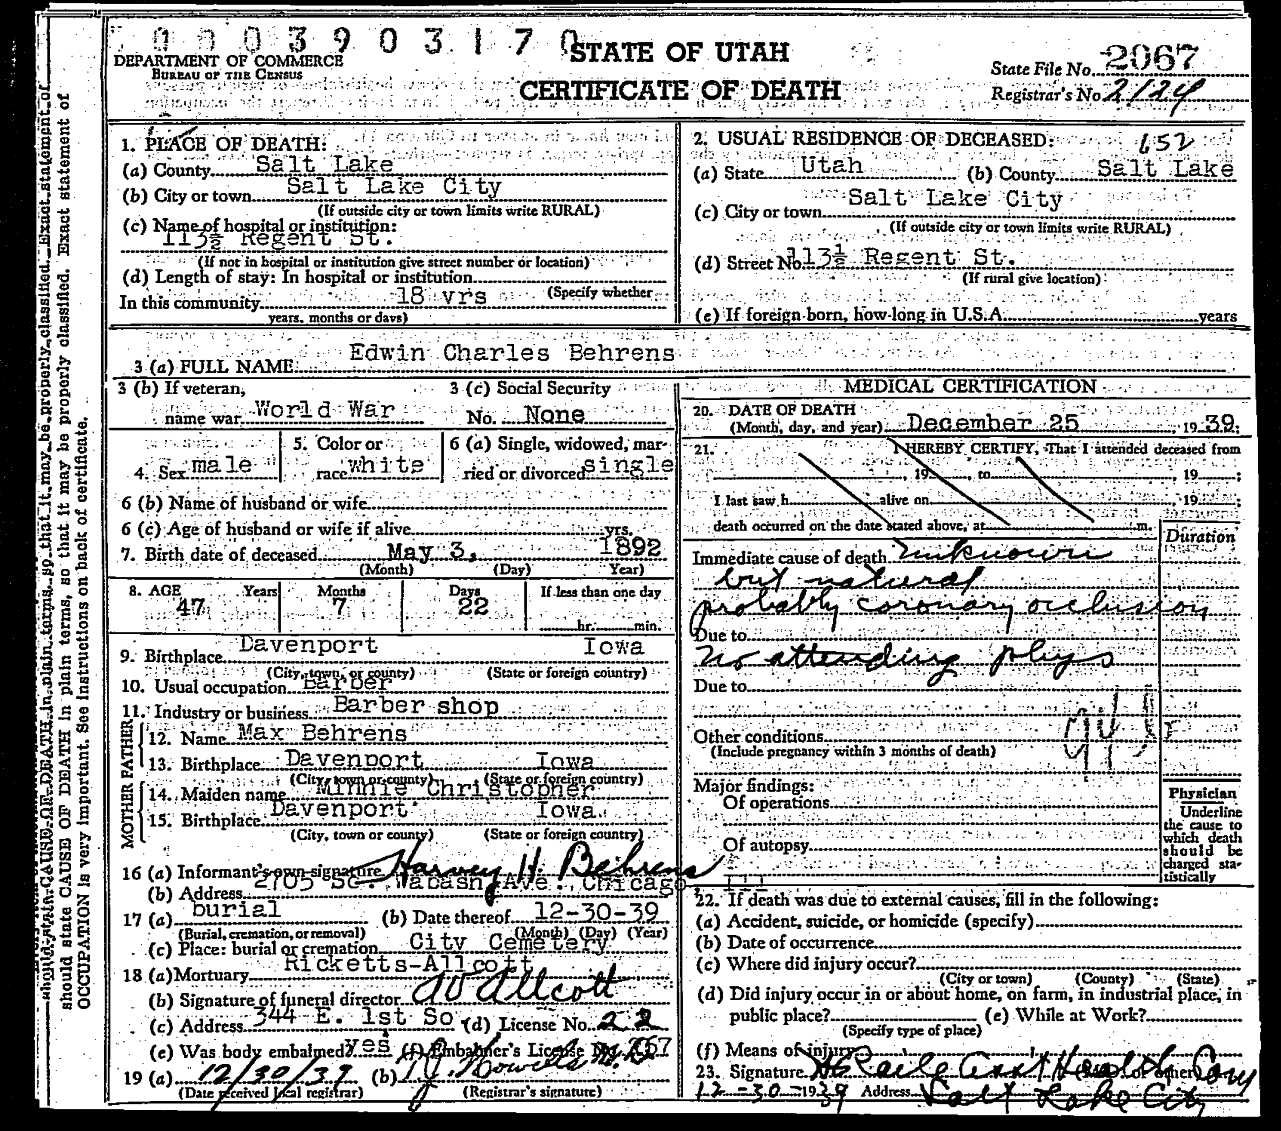 0003903170
DEPARTMENT OF COMMERCE
BUREAU OF THE CENSUS
STATE OF UTAH
CERTIFICATE OF DEATH
State File No. 2067
Registrar's No. 2124
1. PLACE OF DEATH:
(a) County Salt Lake
(b) City or town Salt Lake City
(If outside city or town limits write RURAL)
(c) Name of hospital or institution:
113½ Regent St.
(If not in hospital or institution give street number or location)
(d) Length of stay: In hospital or institution
(Specify whether
In this community 18 yrs
years, months or days)
2. USUAL RESIDENCE OF DECEASED: 652
(a) State Utah (b) County Salt Lake
(c) City or town Salt Lake City
(If outside city or town limits write RURAL)
(d) Street No. 113½ Regent St.
(If rural give location)
(e) If foreign born, how long in U.S.A. years
3 (a) FULL NAME Edwin Charles Behrens
3 (b) If veteran, name war World War
3 (c) Social Security No. None
4. Sex male
5. Color or race white
6 (a) Single, widowed, married or divorced single
6 (b) Name of husband or wife
6 (c) Age of husband or wife if alive yrs.
7. Birth date of deceased May 3, 1892
(Month) (Day) Year)
8. AGE Years Months Days If less than one day
47 7 22 hr. min.
9. Birthplace Davenport Iowa
(City, town, or county) (State or foreign country)
10. Usual occupation Barber
11. Industry or business Barber shop
FATHER
12. Name Max Behrens
13. Birthplace Davenport Iowa
(City, town or county) (State or foreign country)
MOTHER
14. Maiden name Minnie Christopher
15. Birthplace Davenport Iowa
(City, town or county) (State or foreign country)
16 (a) Informant's own signature Harvey H. Behrens
(b) Address 2705 So. Wabash Ave. Chicago, Ill
17 (a) burial (b) Date thereof 12-30-39
(Burial, cremation, or removal) (Month) (Day) (Year)
(c) Place: burial or cremation City Cemetery
18 (a) Mortuary Ricketts-Allcott
(b) Signature of funeral director Allcott
(c) Address 344 E. 1st So (d) License No. 22
(e) Was body embalmed? yes (f) Embalmer's License No.
19 (a) 12/30/39 (b)
(Date received local registrar) (Registrar's signature)
MEDICAL CERTIFICATION
20. DATE OF DEATH
(Month, day, and year) December 25, 1939;
21. I HEREBY CERTIFY, That I attended deceased from
, 19 , to , 19 ;
I last saw h alive on , 19 ;
death occurred on the date stated above, at m.
Duration
Immediate cause of death unknown
but natural
probably coronary occlusion
Due to
No attending phys
Due to
Other conditions
(Include pregnancy within 3 months of death)
Major findings:
Of operations
Of autopsy
Physician
Underline
the cause to
which death
should be
charged sta-
tistically
22. If death was due to external causes, fill in the following:
(a) Accident, suicide, or homicide (specify)
(b) Date of occurrence
(c) Where did injury occur?
(City or town) (County) (State)
(d) Did injury occur in or about home, on farm, in industrial place, in
public place? (e) While at Work?
(Specify type of place)
(f) Means of injury
23. Signature
12-30-1939 Address Salt Lake City
should state CAUSE OF DEATH in plain terms, so that it may be properly classified. Exact statement of
OCCUPATION is very important. See instructions on back of certificate.